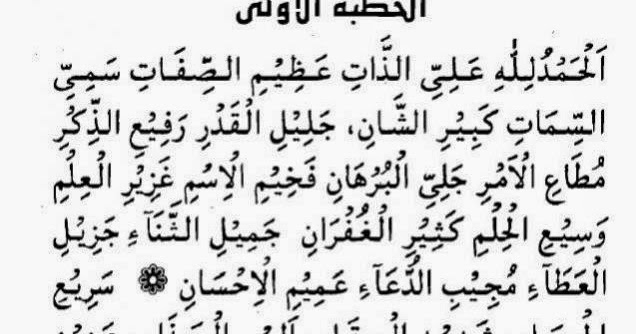 الخطبة الأولى
اَلْحَمْدُلِلّٰهِ عَلِىِّ الذَّاتِ عَظِيْمِ الصِّفَاتِ سَمِىِّ
السِّمَاتِ كَبِيْرِ الشَّانِ، جَلِيْلِ الْقَدْرِ رَفِيْعِ الذِّكْرِ
مُطَاعِ الْاَمْرِ جَلِىِّ الْبُرْهَانِ فَخِيْمِ الْاِسْمِ غَزِيْرِ الْعِلْمِ
وَسِيْعِ الْحِلْمِ كَثِيْرِ الْغُفْرَانِ جَمِيْلِ الثَّنَآءِ جَزِيْلِ
الْعَطَآءِ مُجِيْبِ الدُّعَآءِ عَمِيْمِ الْاِحْسَانِ ۞ سَرِيْعِ